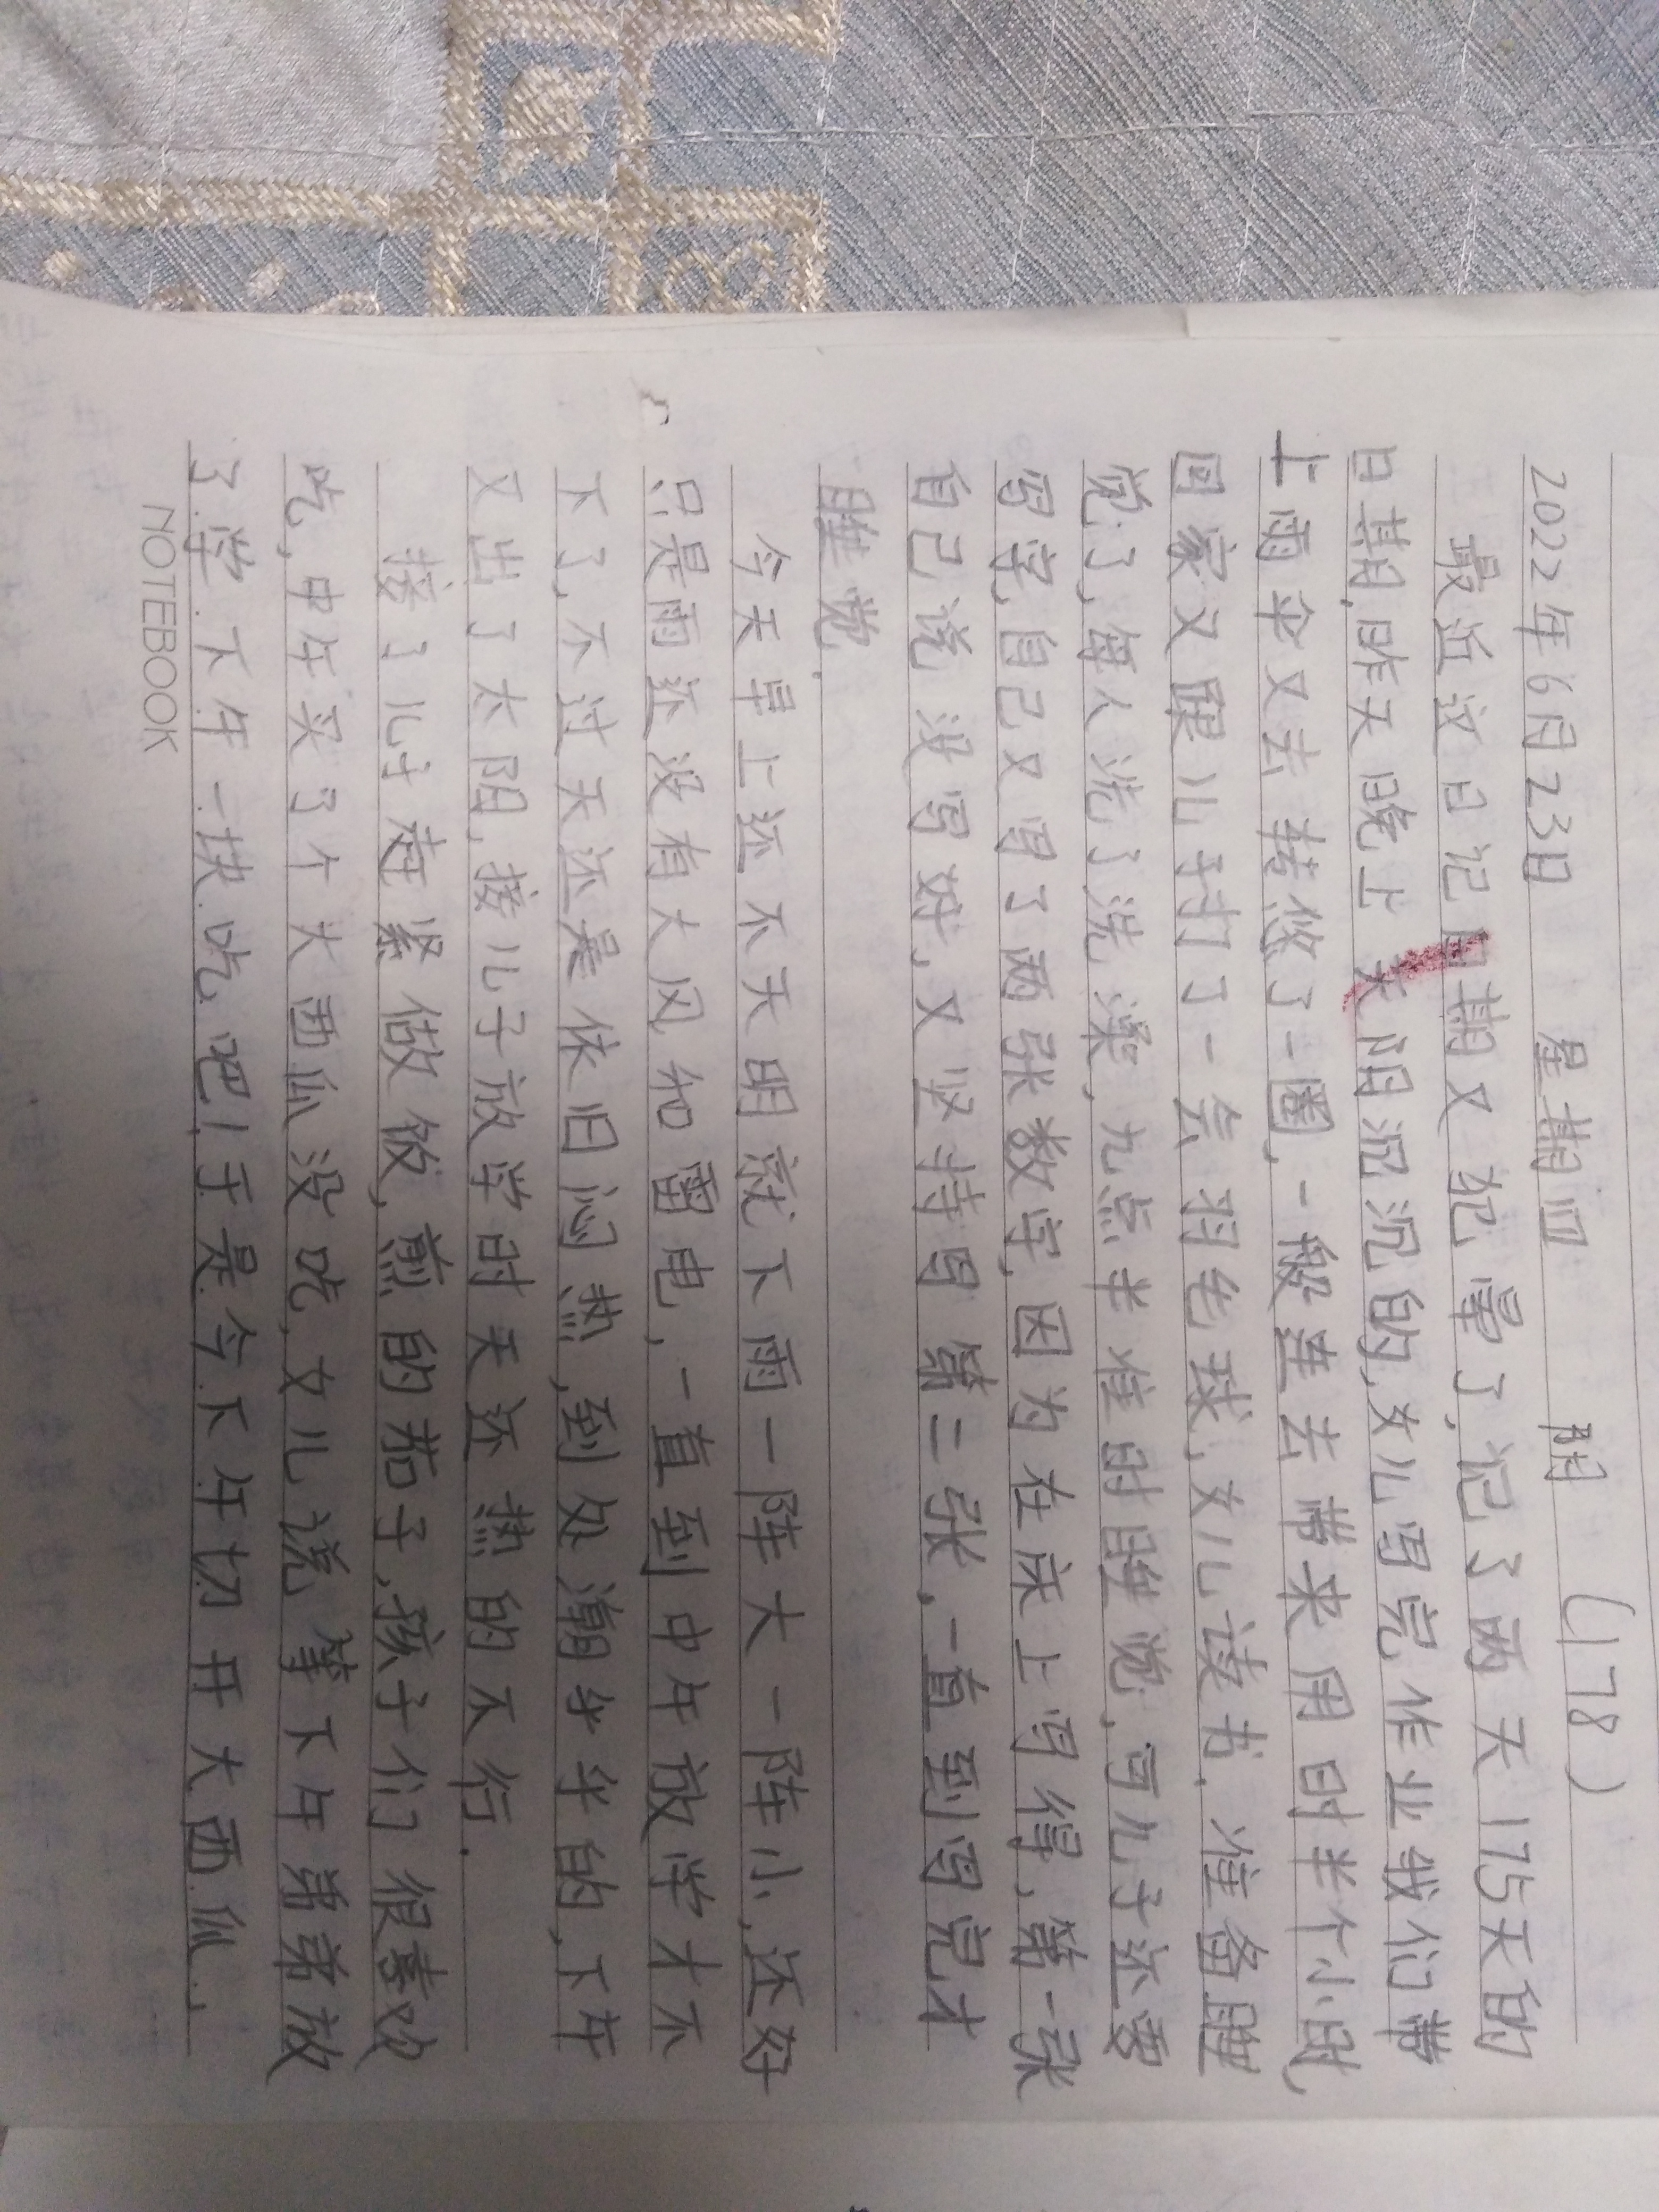 2022年6月23日 星期四 阴 (178)
最近这日记日期又犯晕了,记了两天175天的
日期,昨天晚上天阴沉沉的,女儿写完作业我们带
上雨伞又去转悠了一圈,一般连去带来用时半个小时,
回家又跟儿子打了一会羽毛球,女儿读书.准备睡
觉了,每人洗了洗澡,九点半准时睡觉,可儿子还要
写字,自己又写了两张数字,因为在床上写得,第一张
自己说没写好,又坚持写第二张,一直到写完才
睡觉.
今天早上还不天明就下雨一阵大一阵小,还好
只是雨还没有大风和雷电,一直到中午放学才不
下了,不过天还是依旧闷热,到处潮乎乎的,下午
又出了太阳,接儿子放学时天还热的不行.
接了儿子赶紧做饭,煎的茄子,孩子们很喜欢
吃,中午买了个大西瓜没吃,女儿说等下午弟弟放
了学.下午一块吃吧!于是今下午切开大西瓜,
NOTEBOOK